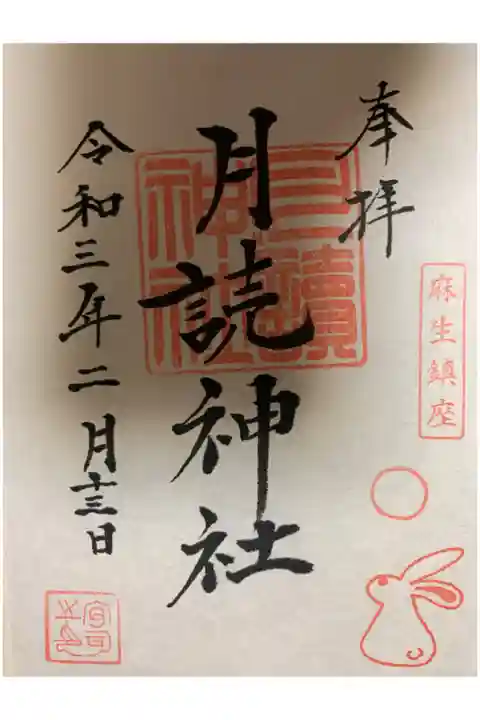 奉拝
麻生鎮座
月読神社
月讀神社
令和三年二月十三日
宮司之印